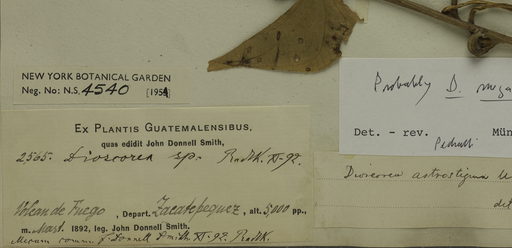 NEW YORK BOTANICAL GARDEN
Neg. No: N.S. 4540 [1954]
Ex Plantis Guatemalensibus,
quas edidit John Donnell Smith,
2565. Dioscorea sp. Radlk. XI-92.
Volcan de Fuego, Depart. Zacatepequez, alt. 5,000 pp.,
m. Mart. 1892, leg. John Donnell Smith.
Donnell Smith XI-92. Radlk.
Probably D.
Det. - rev.
Mün
Dioscorea astrostigma U
det